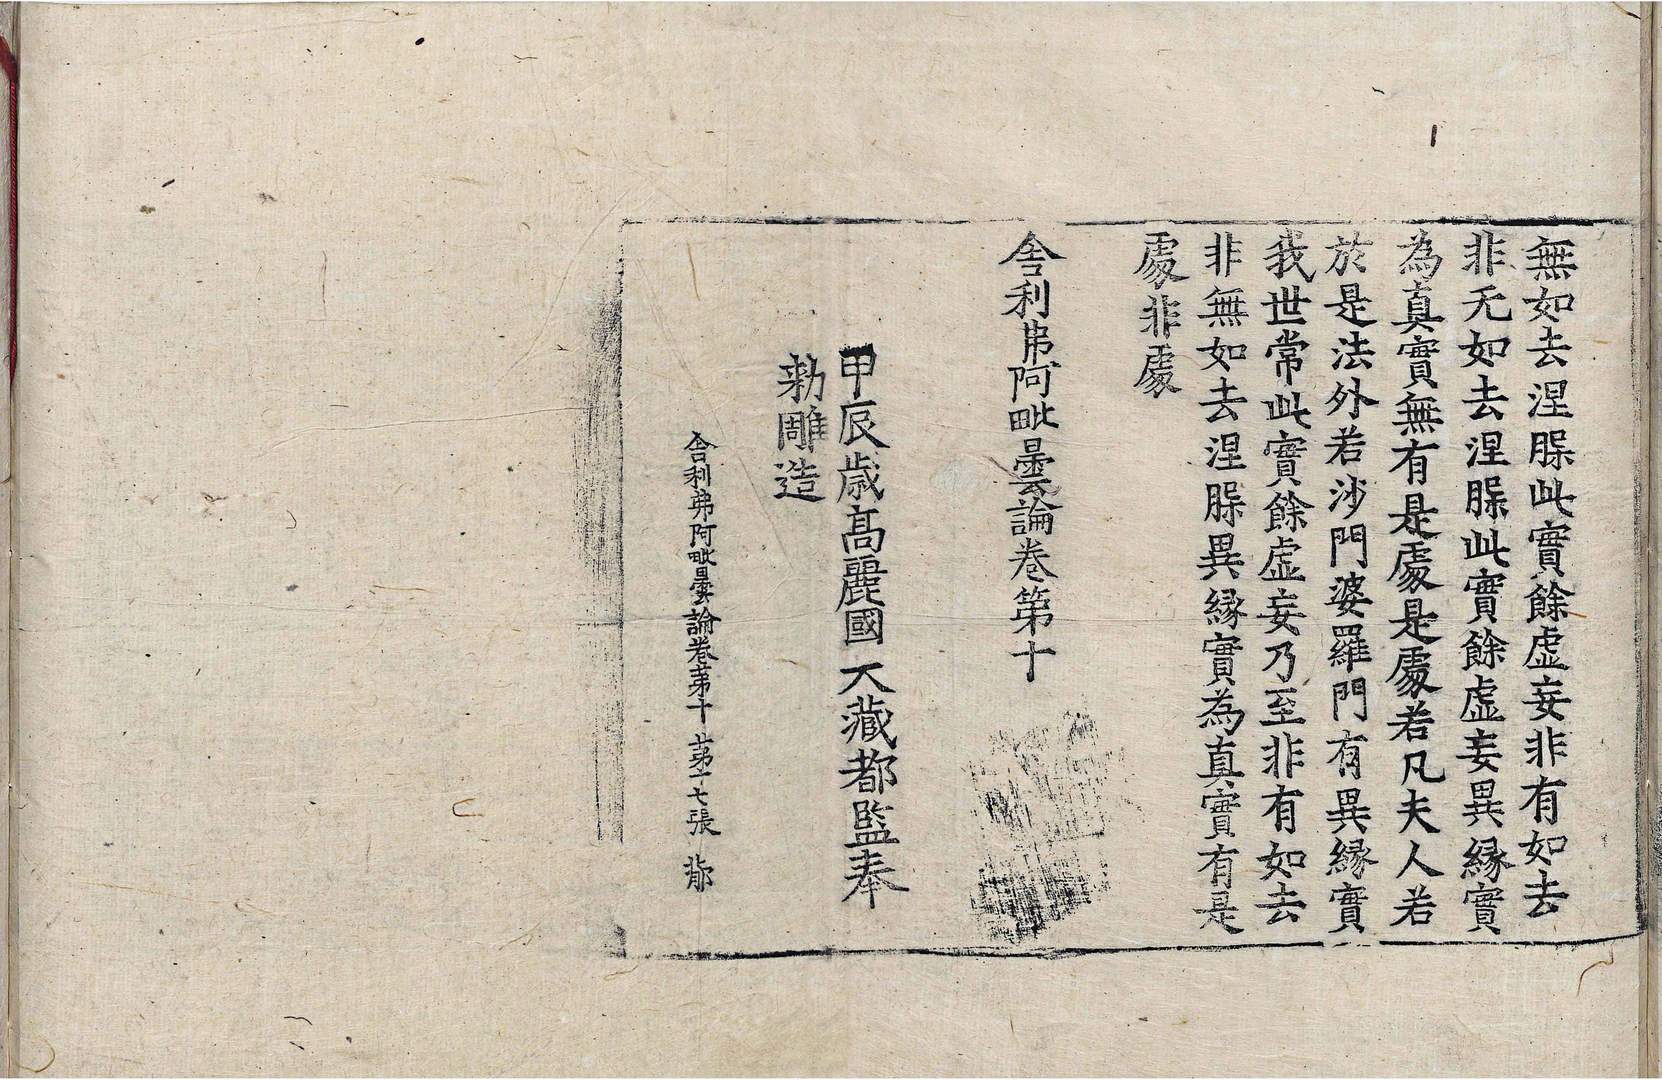 無如去涅槃此實餘虛妄非有如去
非无如去涅槃此實餘虛妄異緣實
為真實無有是處是處若凡夫人若
於是法外若沙門婆羅門有異緣實
我世常此實餘虛妄乃至非有如去
非無如去涅槃異緣實為真實有是
處非處
舍利弗阿毗曇論卷第十
甲辰歲高麗國大藏都監奉
勅雕造
舍利弗阿毗曇論卷第十 第十七張